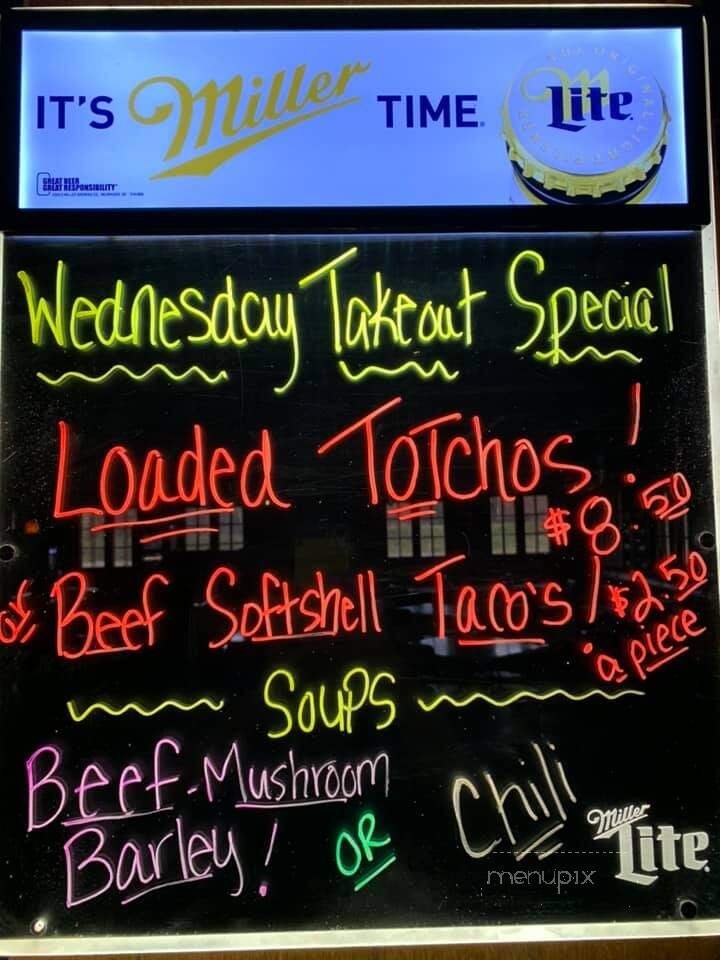 IT'S Miller TIME.
Lite
GREAT BEER
GREAT RESPONSIBILITY
Wednesday Takeout Special
Loaded ToTchos!
$8.50
or Beef Softshell Taco's! $2.50
a piece
Soups
Beef-Mushroom
Barley!
OR
Chili
Miller
Lite
menupix